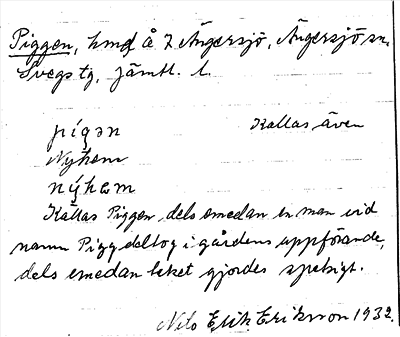 Piggen, hmd å 7 Ängersjö, Ängersjö sn,
Svegs tg, Jämtl. l.
pigən Kallas även
Nyhem
nýhɛm
Kallas Piggen, dels emedan en man vid
namn Pigg deltog i gårdens uppförande,
dels emedan taket gjordes spetsigt.
Nils Erik Eriksson 1932.